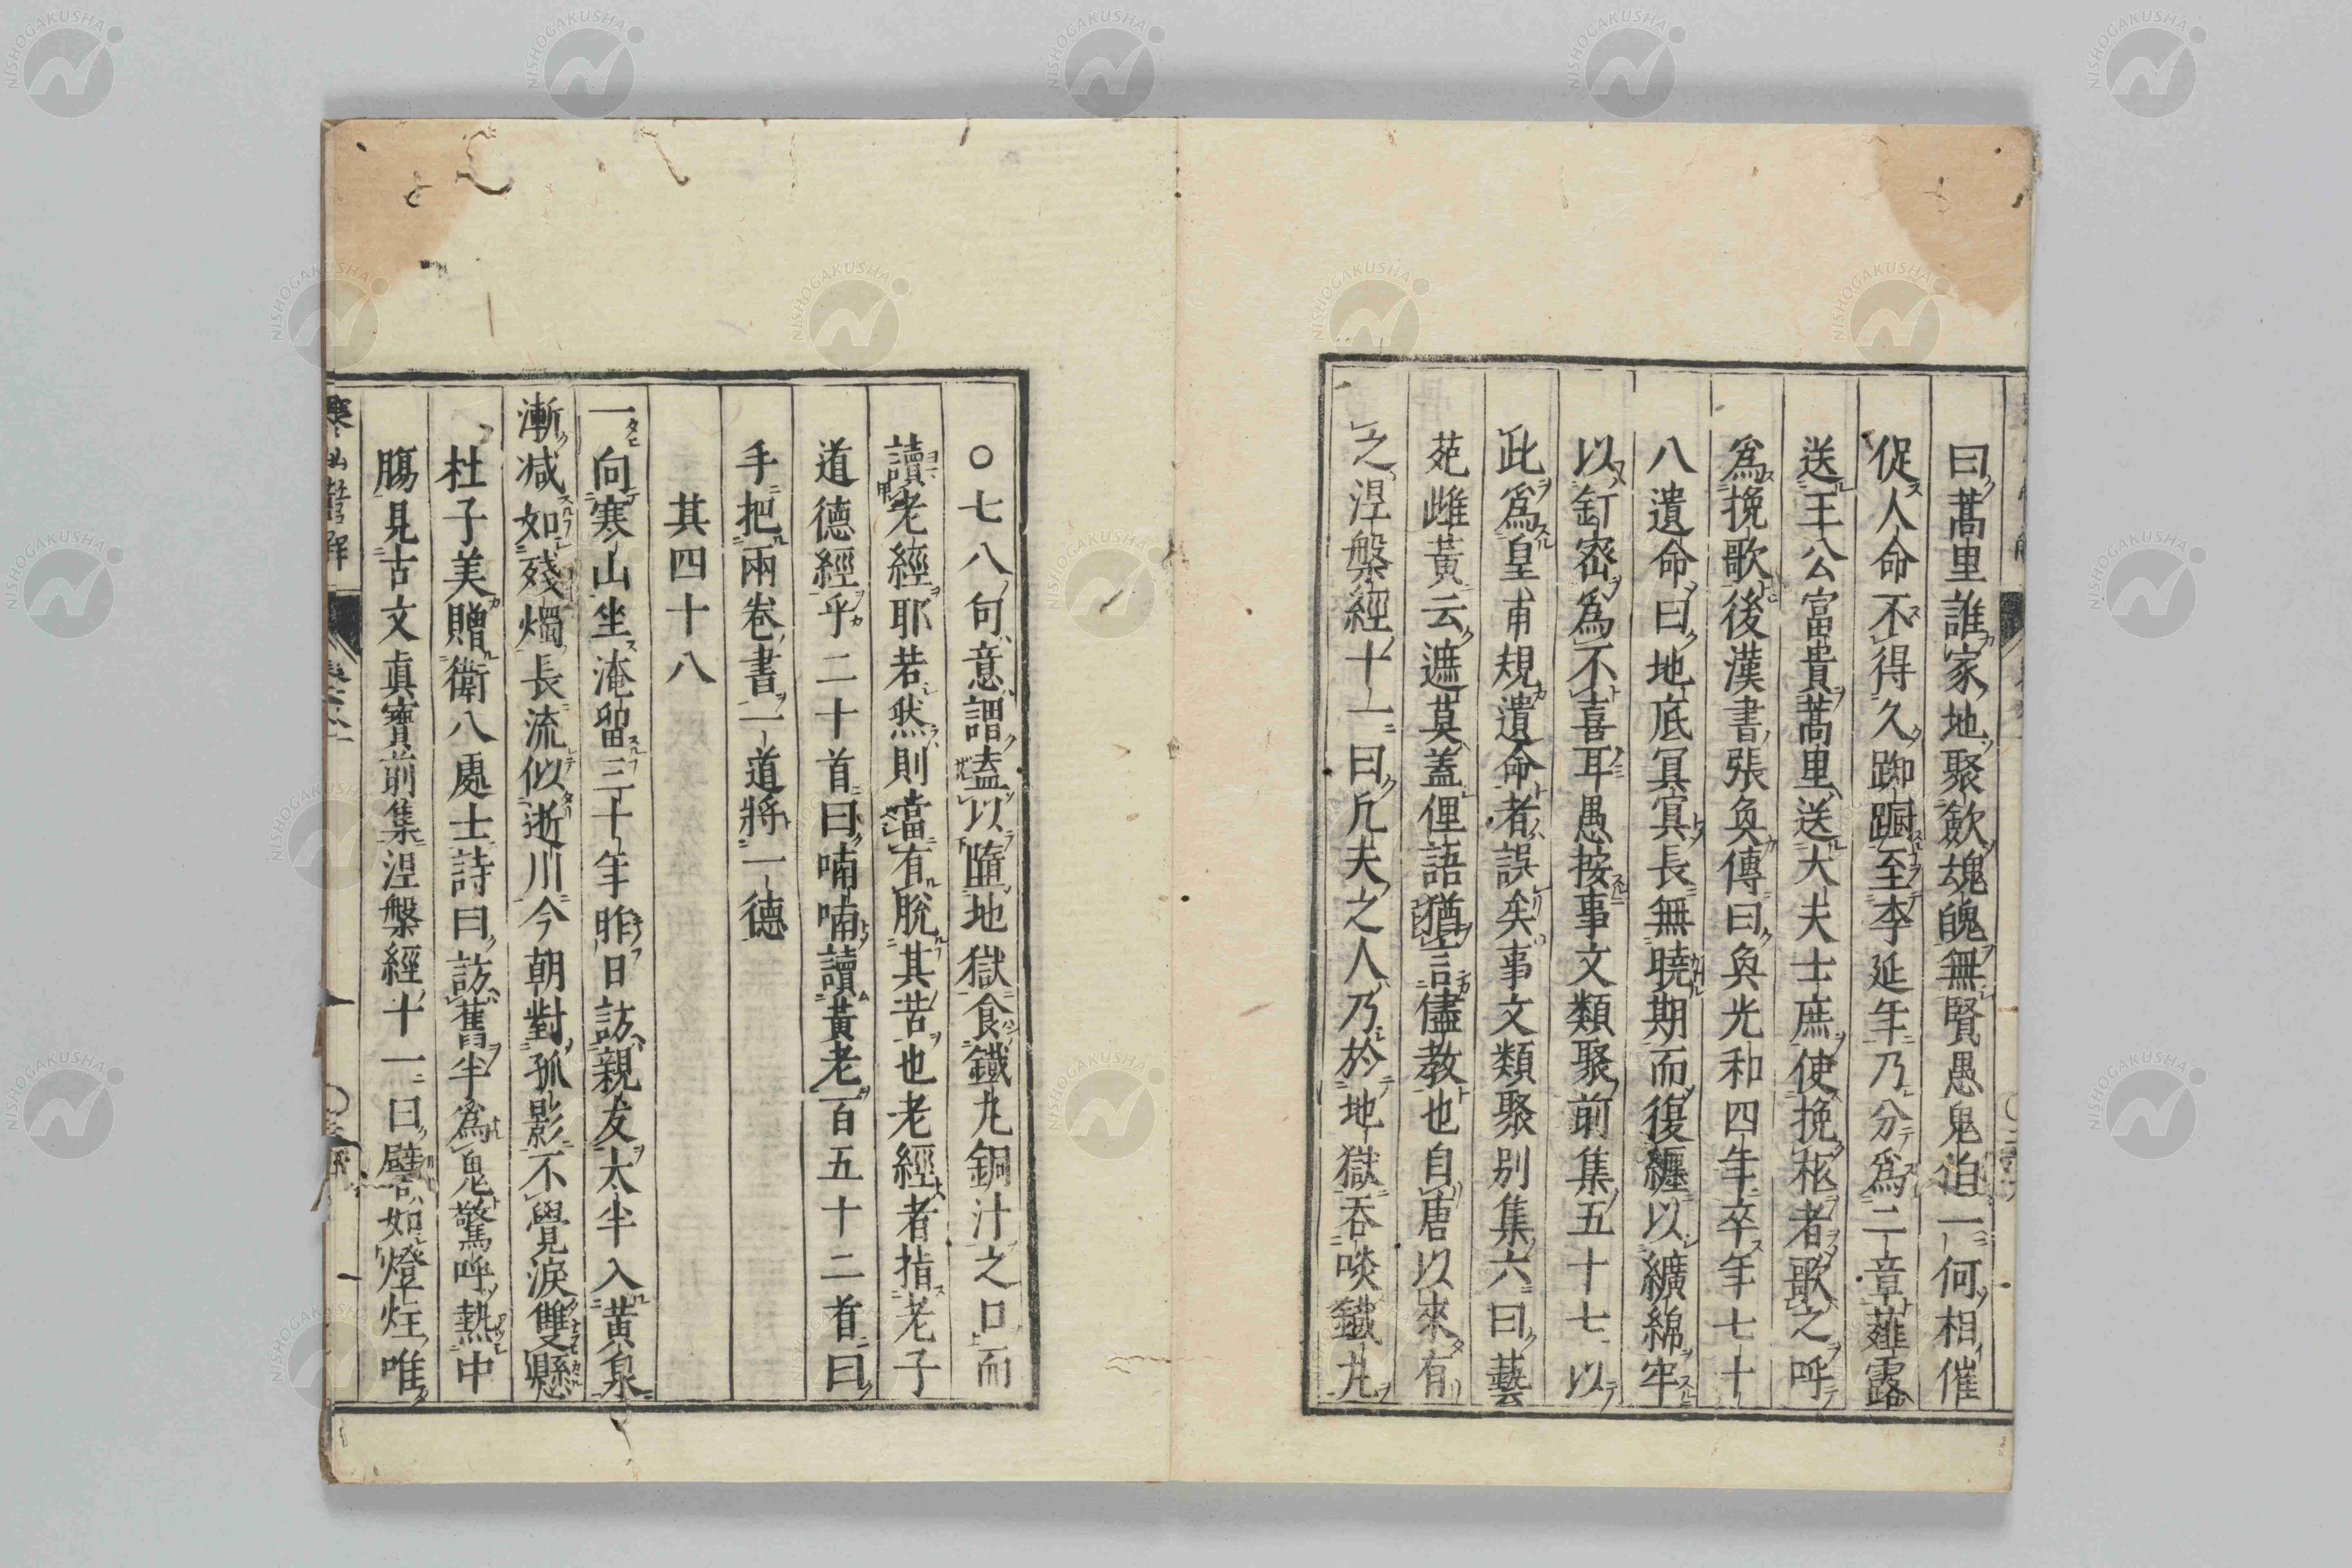 曰蒿里誰家地聚歛魂魄無賢愚鬼伯一何相催
促人命不得久踟蹰至李延年乃分為二章薤露
送王公富貴蒿里送大夫士庶使挽柩者歌之呼
為挽歌後漢書張奐傳曰奐光和四年卒年七十
八遺命曰地底冥冥長無曉期而復纏以纊綿牢
以釘密為不喜耳愚按事文類聚前集五十七以
此為皇甫規遺命者誤矣事文類聚別集六曰藝
苑雌黃云遮莫蓋俚語猶言儘教也自唐以來有
之涅槃經十一曰凡夫之人乃於地獄吞啖鐵丸
○七八句意謂盍以墮地獄食鐵丸銅汁之口而
讀老經耶若然則當有脫其苦也老經者指老子
道德經乎二十首曰喃喃讀黃老百五十二首曰
手把兩卷書一道將一德
其四十八
一向寒山坐淹留三十年昨日訪親友太半入黃泉
漸減如殘燭長流似逝川今朝對孤影不覺淚雙懸
杜子美贈衛八處士詩曰訪舊半為鬼驚呼熱中
膓見古文眞寶前集涅槃經十一曰譬如燈炷唯
NISHOGAKUSHA